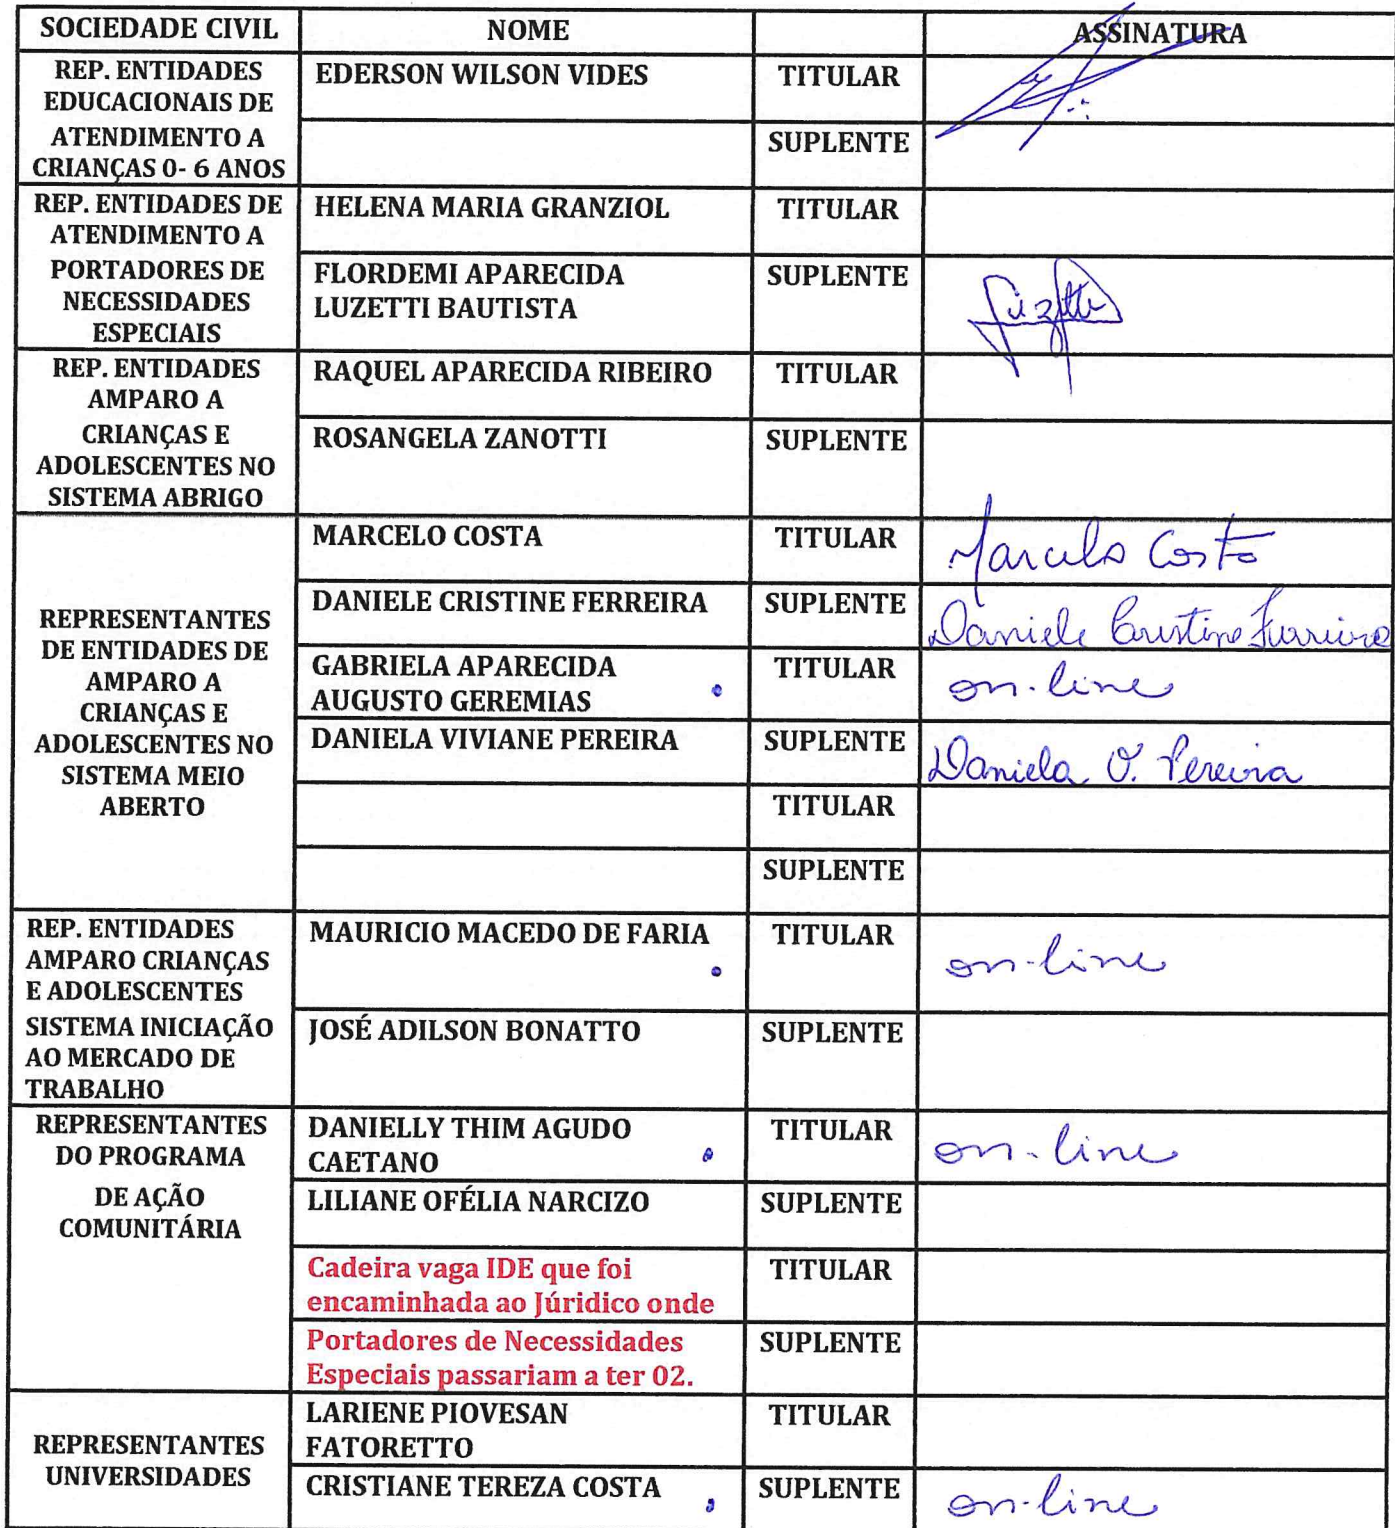 SOCIEDADE CIVIL NOME ASSINATURA
REP. ENTIDADES
EDUCACIONAIS DE
ATENDIMENTO A
CRIANÇAS 0- 6 ANOS
EDERSON WILSON VIDES TITULAR
SUPLENTE
REP. ENTIDADES DE
ATENDIMENTO A
PORTADORES DE
NECESSIDADES
ESPECIAIS
HELENA MARIA GRANZIOL TITULAR
FLORDEMI APARECIDA
LUZETTI BAUTISTA
SUPLENTE
REP. ENTIDADES
AMPARO A
CRIANÇAS E
ADOLESCENTES NO
SISTEMA ABRIGO
RAQUEL APARECIDA RIBEIRO TITULAR
ROSANGELA ZANOTTI SUPLENTE
REPRESENTANTES
DE ENTIDADES DE
AMPARO A
CRIANÇAS E
ADOLESCENTES NO
SISTEMA MEIO
ABERTO
MARCELO COSTA TITULAR Marcelo Costa
DANIELE CRISTINE FERREIRA SUPLENTE Daniele Cristine Ferreira
GABRIELA APARECIDA
AUGUSTO GEREMIAS
TITULAR on-line
DANIELA VIVIANE PEREIRA SUPLENTE Daniela V. Pereira
TITULAR
SUPLENTE
REP. ENTIDADES
AMPARO CRIANÇAS
E ADOLESCENTES
SISTEMA INICIAÇÃO
AO MERCADO DE
TRABALHO
MAURICIO MACEDO DE FARIA TITULAR on-line
JOSÉ ADILSON BONATTO SUPLENTE
REPRESENTANTES
DO PROGRAMA
DE AÇÃO
COMUNITÁRIA
DANIELLY THIM AGUDO
CAETANO
TITULAR on-line
LILIANE OFÉLIA NARCIZO SUPLENTE
Cadeira vaga IDE que foi
encaminhada ao Júridico onde
TITULAR
Portadores de Necessidades
Especiais passariam a ter 02.
SUPLENTE
REPRESENTANTES
UNIVERSIDADES
LARIENE PIOVESAN
FATORETTO
TITULAR
CRISTIANE TEREZA COSTA SUPLENTE on-line